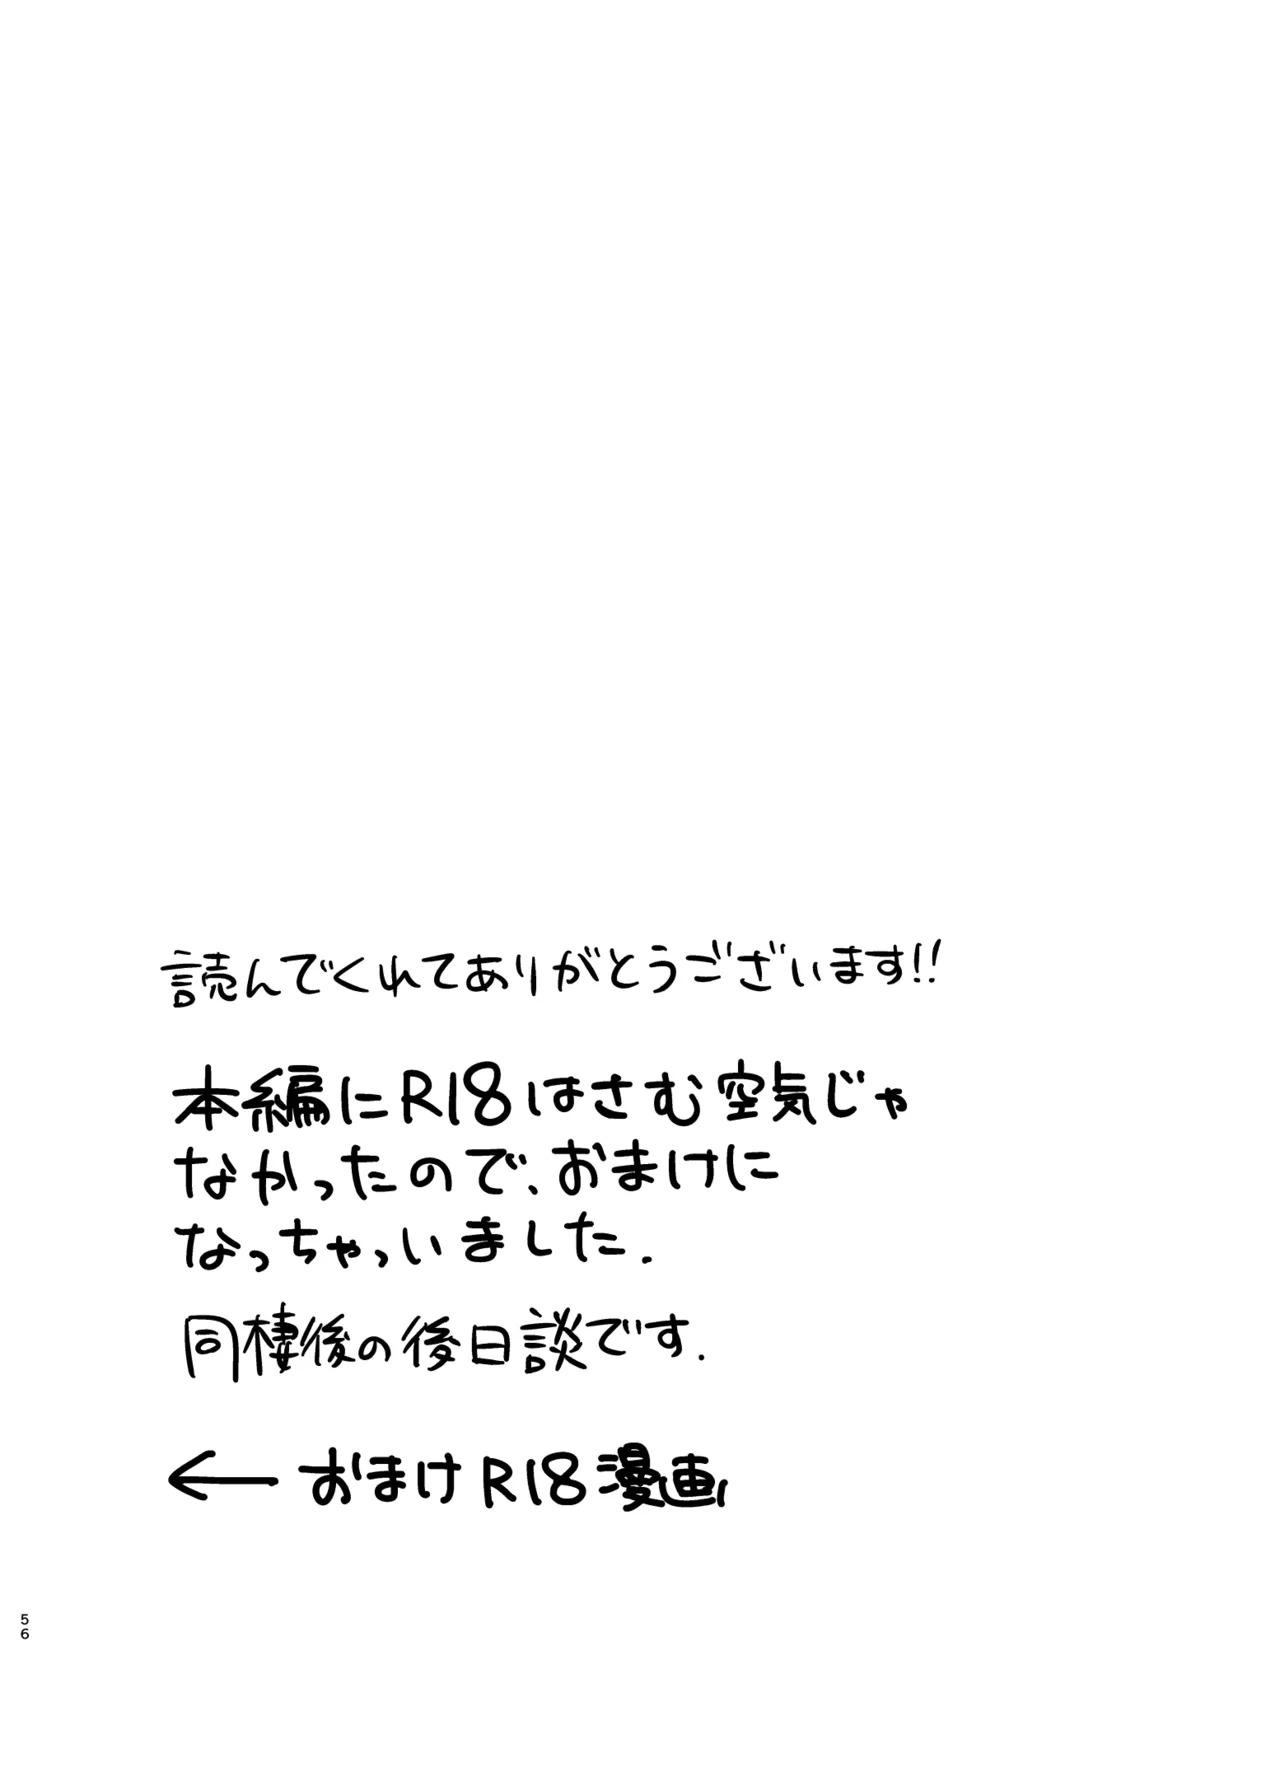 読んでくれてありがとうございます!!
本編にR18はさむ空気じゃ
なかったので、おまけに
なっちゃいました.
同棲後の後日談です.
← おまけR18漫画
56